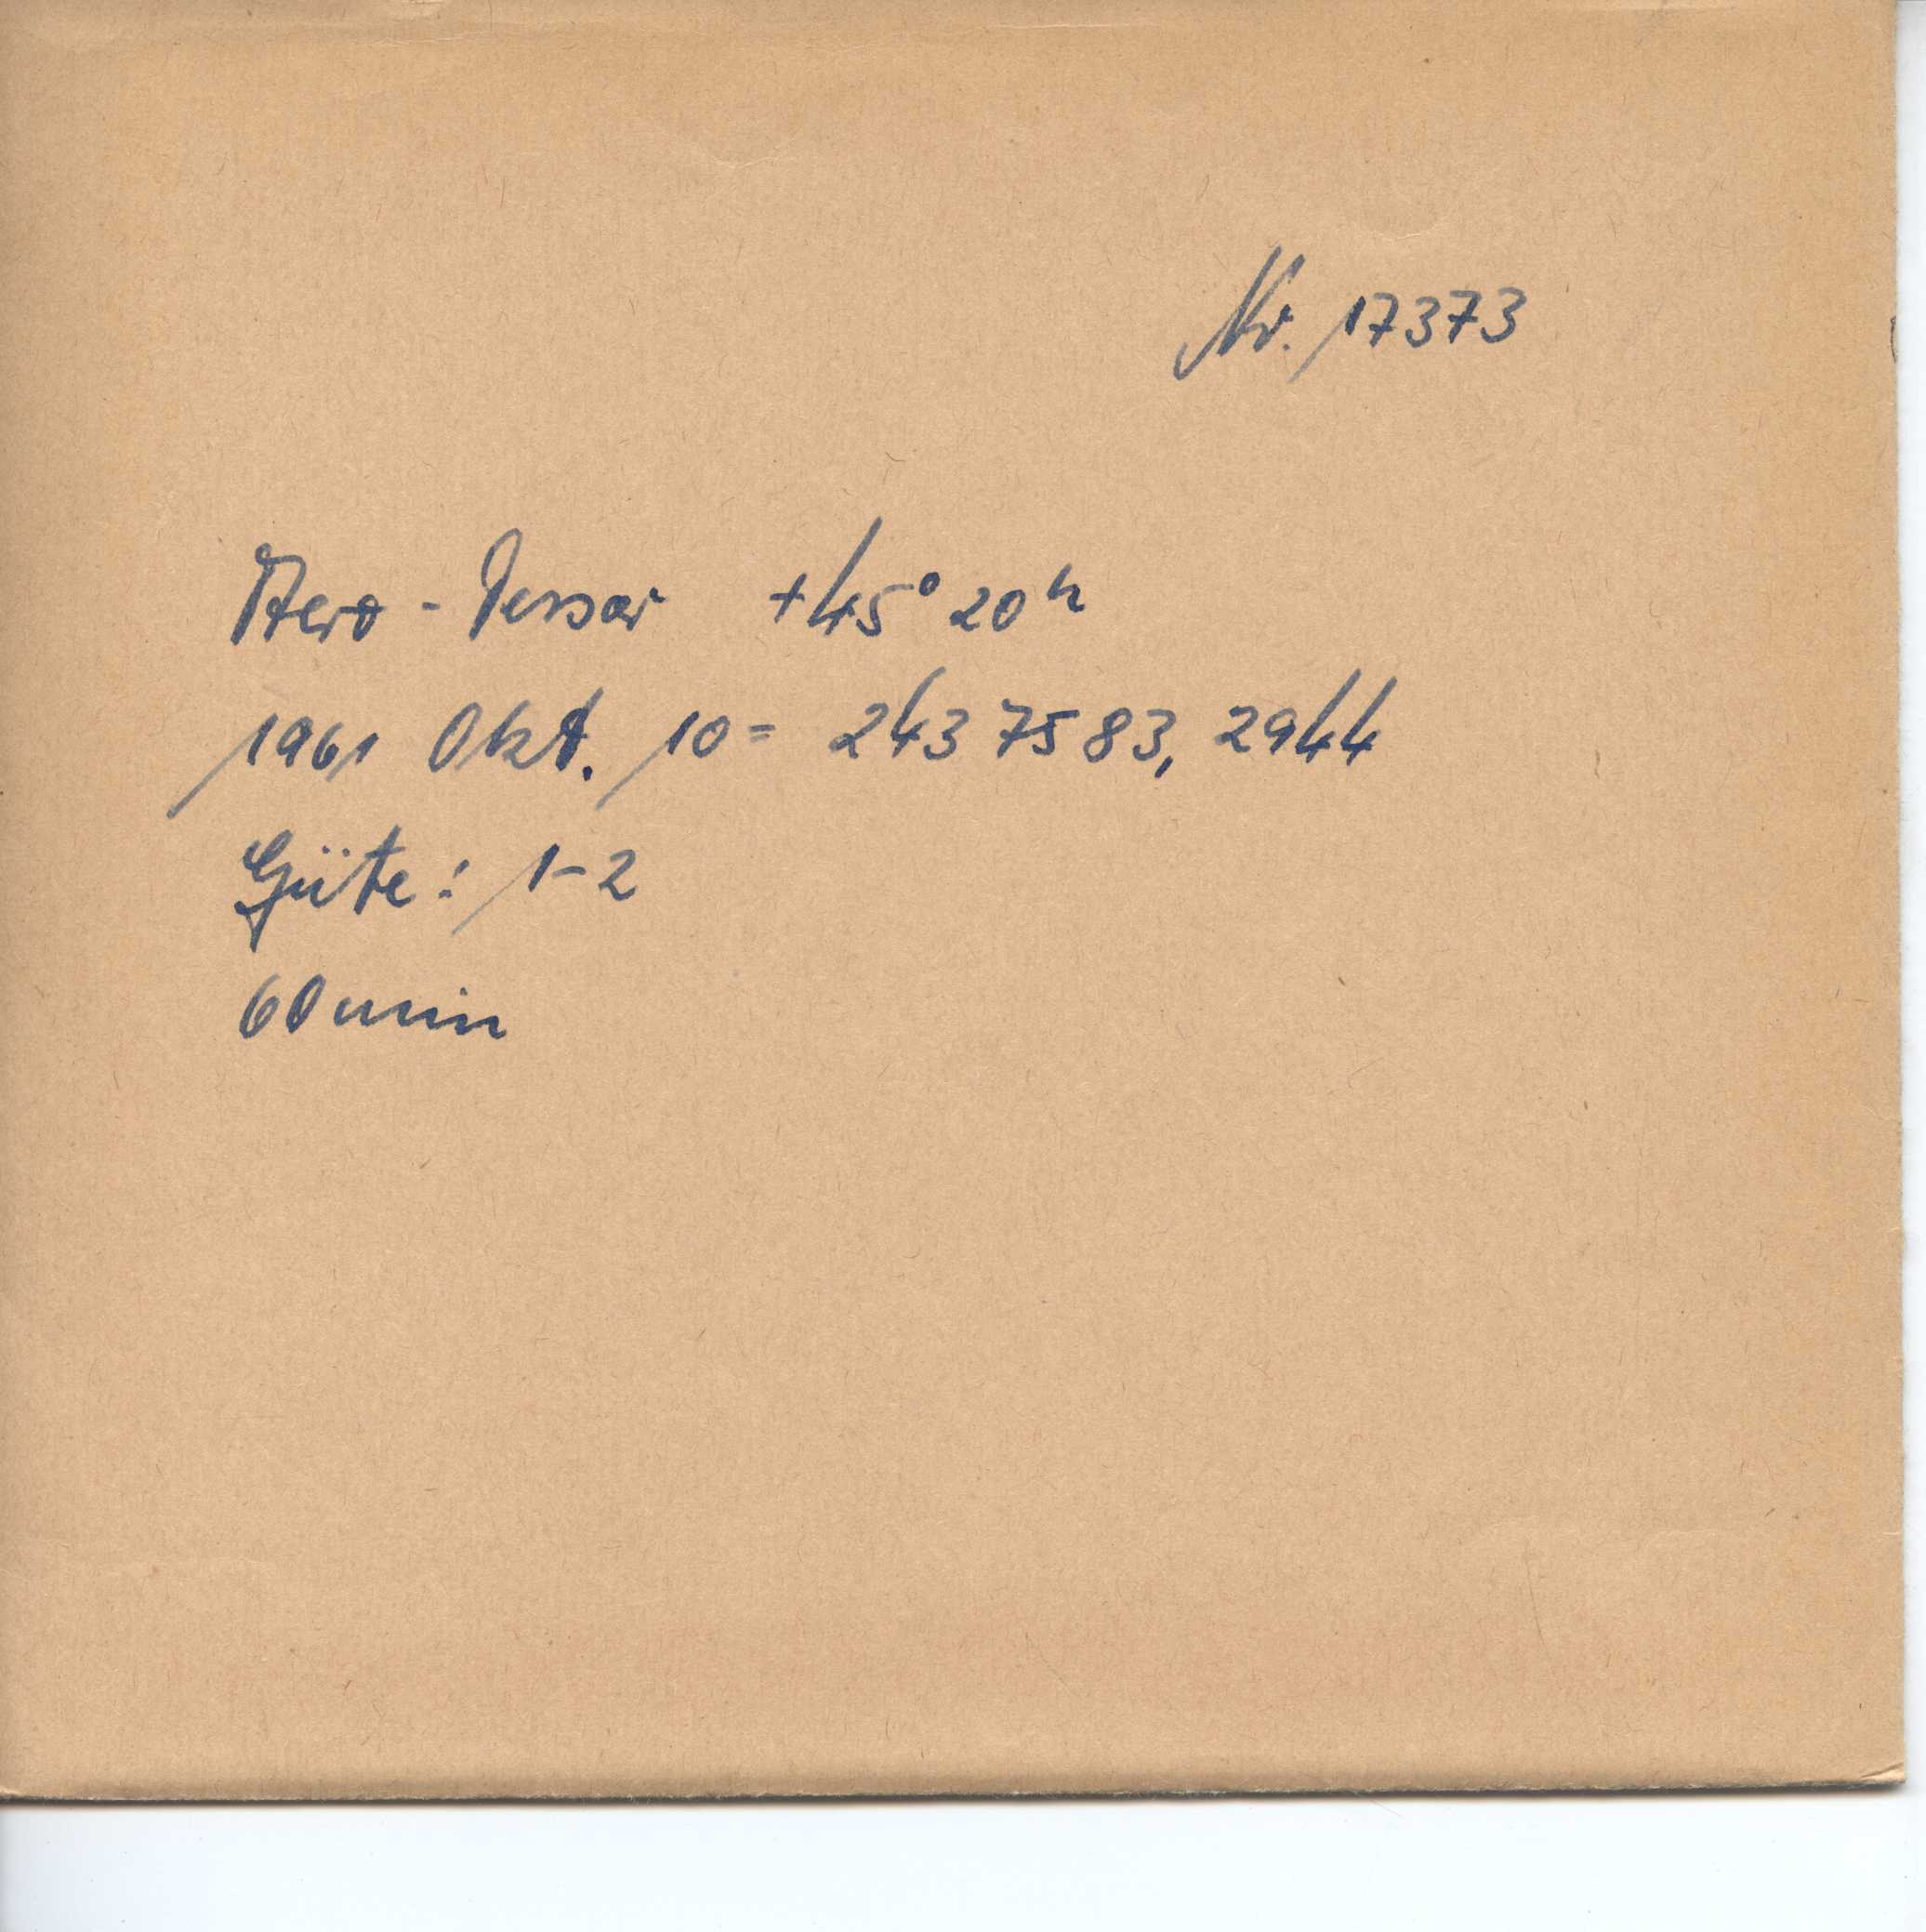 Nr. 17373
Aero-Tessar +45° 20ʰ
1961 Okt. 10 = 243 7583, 2944
Güte: 1-2
60 min